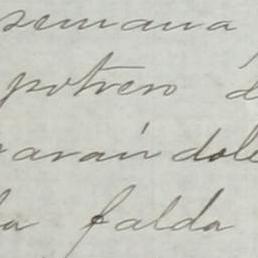 semana
potrero d
arán dole
la falda